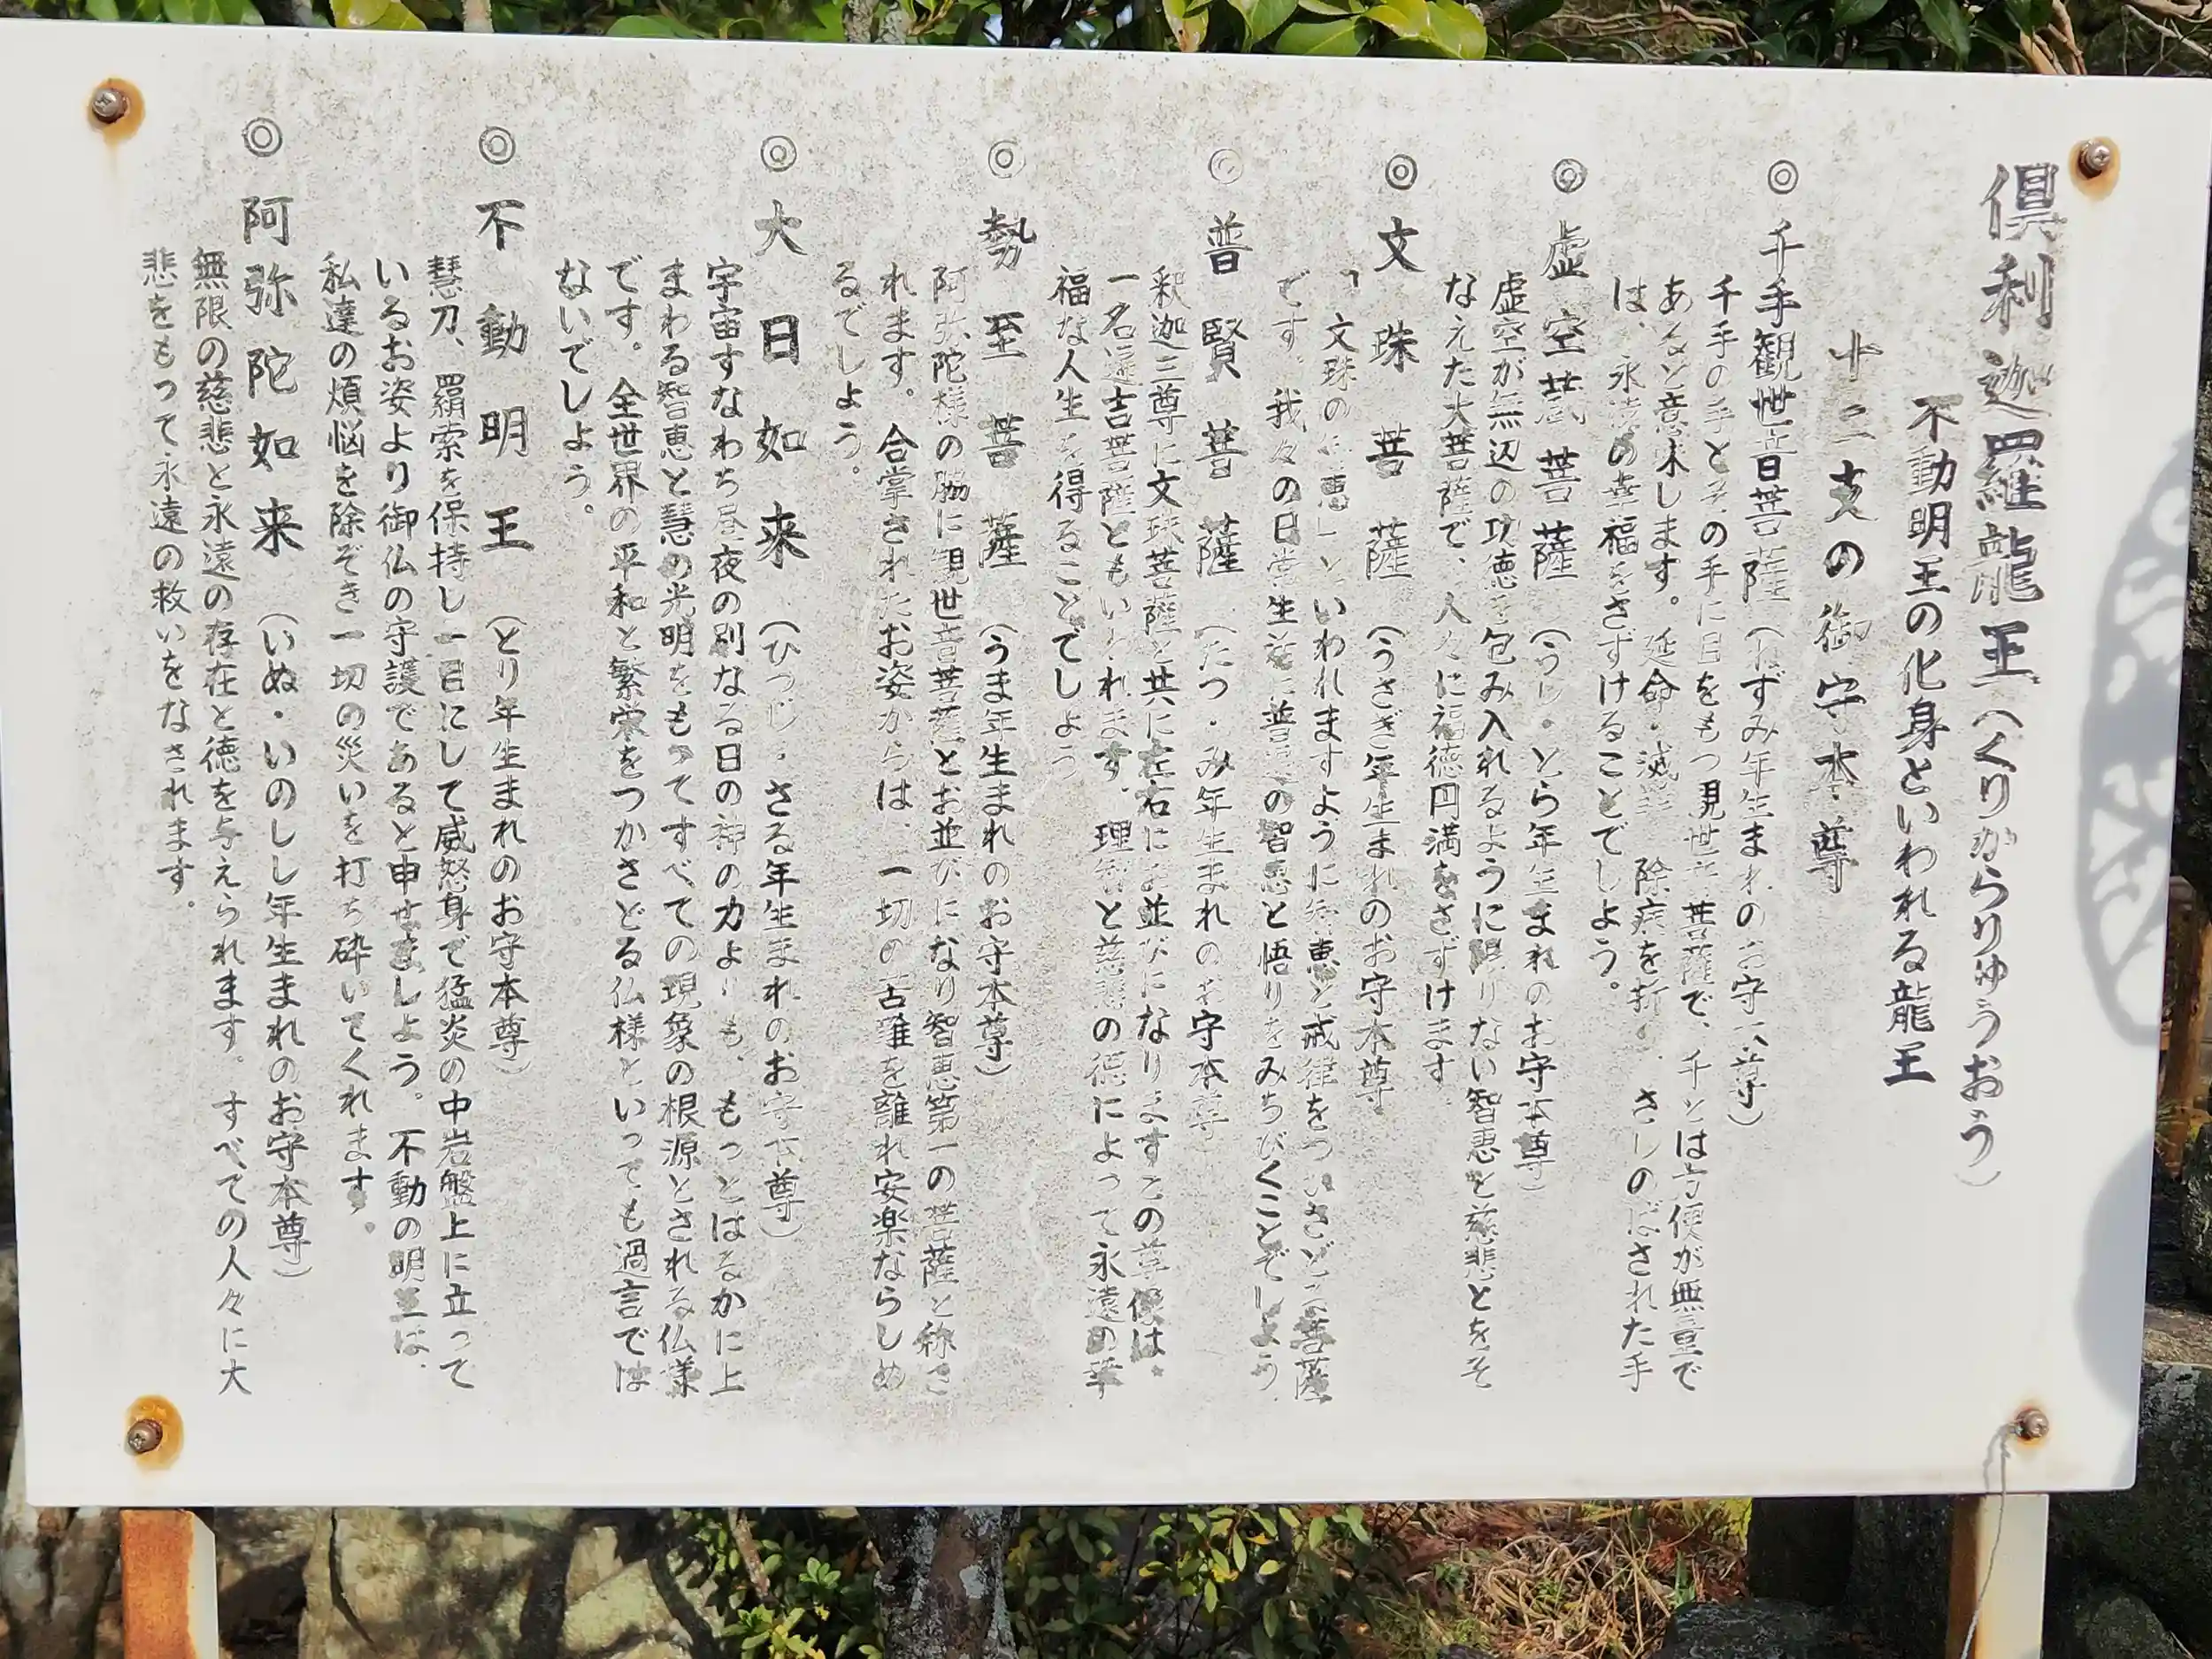 倶利迦羅龍王(くりからりゅうおう)
不動明王の化身といわれる龍王
十二支の御守本尊
◎千手観世音菩薩(ねずみ年生まれのお守本尊)
千手の手とその手に目をもつ観世音菩薩で、千とは方便が無量で
あると意味します。延命・滅罪 除病を祈り、さしのばされた手
は、永遠の幸福をさずけることでしよう。
◎虚空蔵菩薩(うし・とら年生まれのお守本尊)
虚空が無辺の功徳を包み入れるように限りない智恵と慈悲とをそ
なえた大菩薩で、人々に福徳円満をさずけます
◎文珠菩薩(うさぎ年生まれのお守本尊
「文珠の知恵」といわれますように知恵と戒律をつかさどる菩薩
です。我々の日常生活に普遍の智恵と悟りをみちびくことでしよう
◎普賢菩薩(たつ・み年生まれのお守本尊
釈迦三尊に文珠菩薩と共に左右にお並びになりますこの尊像は、
一名遍吉菩薩ともいわれます。理智と慈悲の徳によって永遠の幸
福な人生を得ることでしよう
◎勢至菩薩(うま年生まれのお守本尊)
阿弥陀様の脇に観世音菩薩とお並びになり智恵第一の菩薩と称さ
れます。合掌されたお姿からは、一切の苦難を離れ安楽ならしめ
るでしよう。
◎大日如来(ひつじ・さる年生まれのお守本尊)
宇宙すなわち昼夜の別なる日の神の力よりも、もっとはるかに上
まわる智恵と慧の光明をもってすべての現象の根源とされる仏様
です。全世界の平和と繁栄をつかさどる仏様といっても過言では
ないでしよう。
◎不動明王(とり年生まれのお守本尊)
慧刀、羂索を保持し一目にして威怒身で猛炎の中岩盤上に立って
いるお姿より御仏の守護であると申せましよう。不動の明王は、
私達の煩悩を除ぞき一切の災いを打ち砕いてくれます。
◎阿弥陀如来(いぬ・いのしし年生まれのお守本尊)
無限の慈悲と永遠の存在と徳を与えられます。すべての人々に大
悲をもって永遠の救いをなされます。